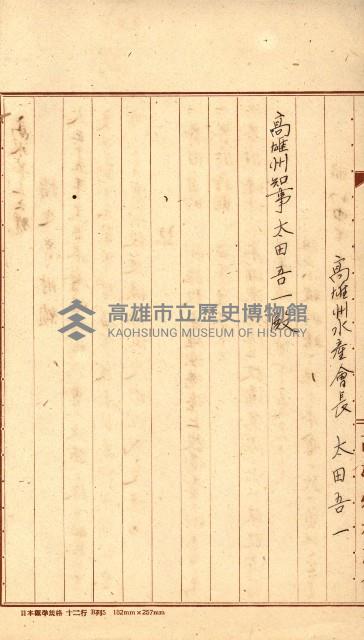 高雄州水産會長 太田吾一
高雄州知事太田吾一殿
高雄市立歷史博物館
KAOHSIUNG MUSEUM OF HISTORY
日本標準規格 十二行 B列5 182mm×257mm